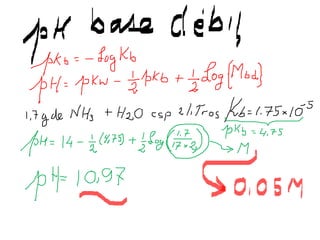 pH base débil
pKb = - Log Kb
pH = pKw - 1/2 pKb + 1/2 Log [Mbd]
1,7 g de NH3 + H2O csp 2 litros Kb = 1.75 x 10^-5
pKb = 4,75
pH = 14 - 1/2 (4,75) + 1/2 Log (1.7 / 17 x 2) → M
pH = 10,97
0,05 M